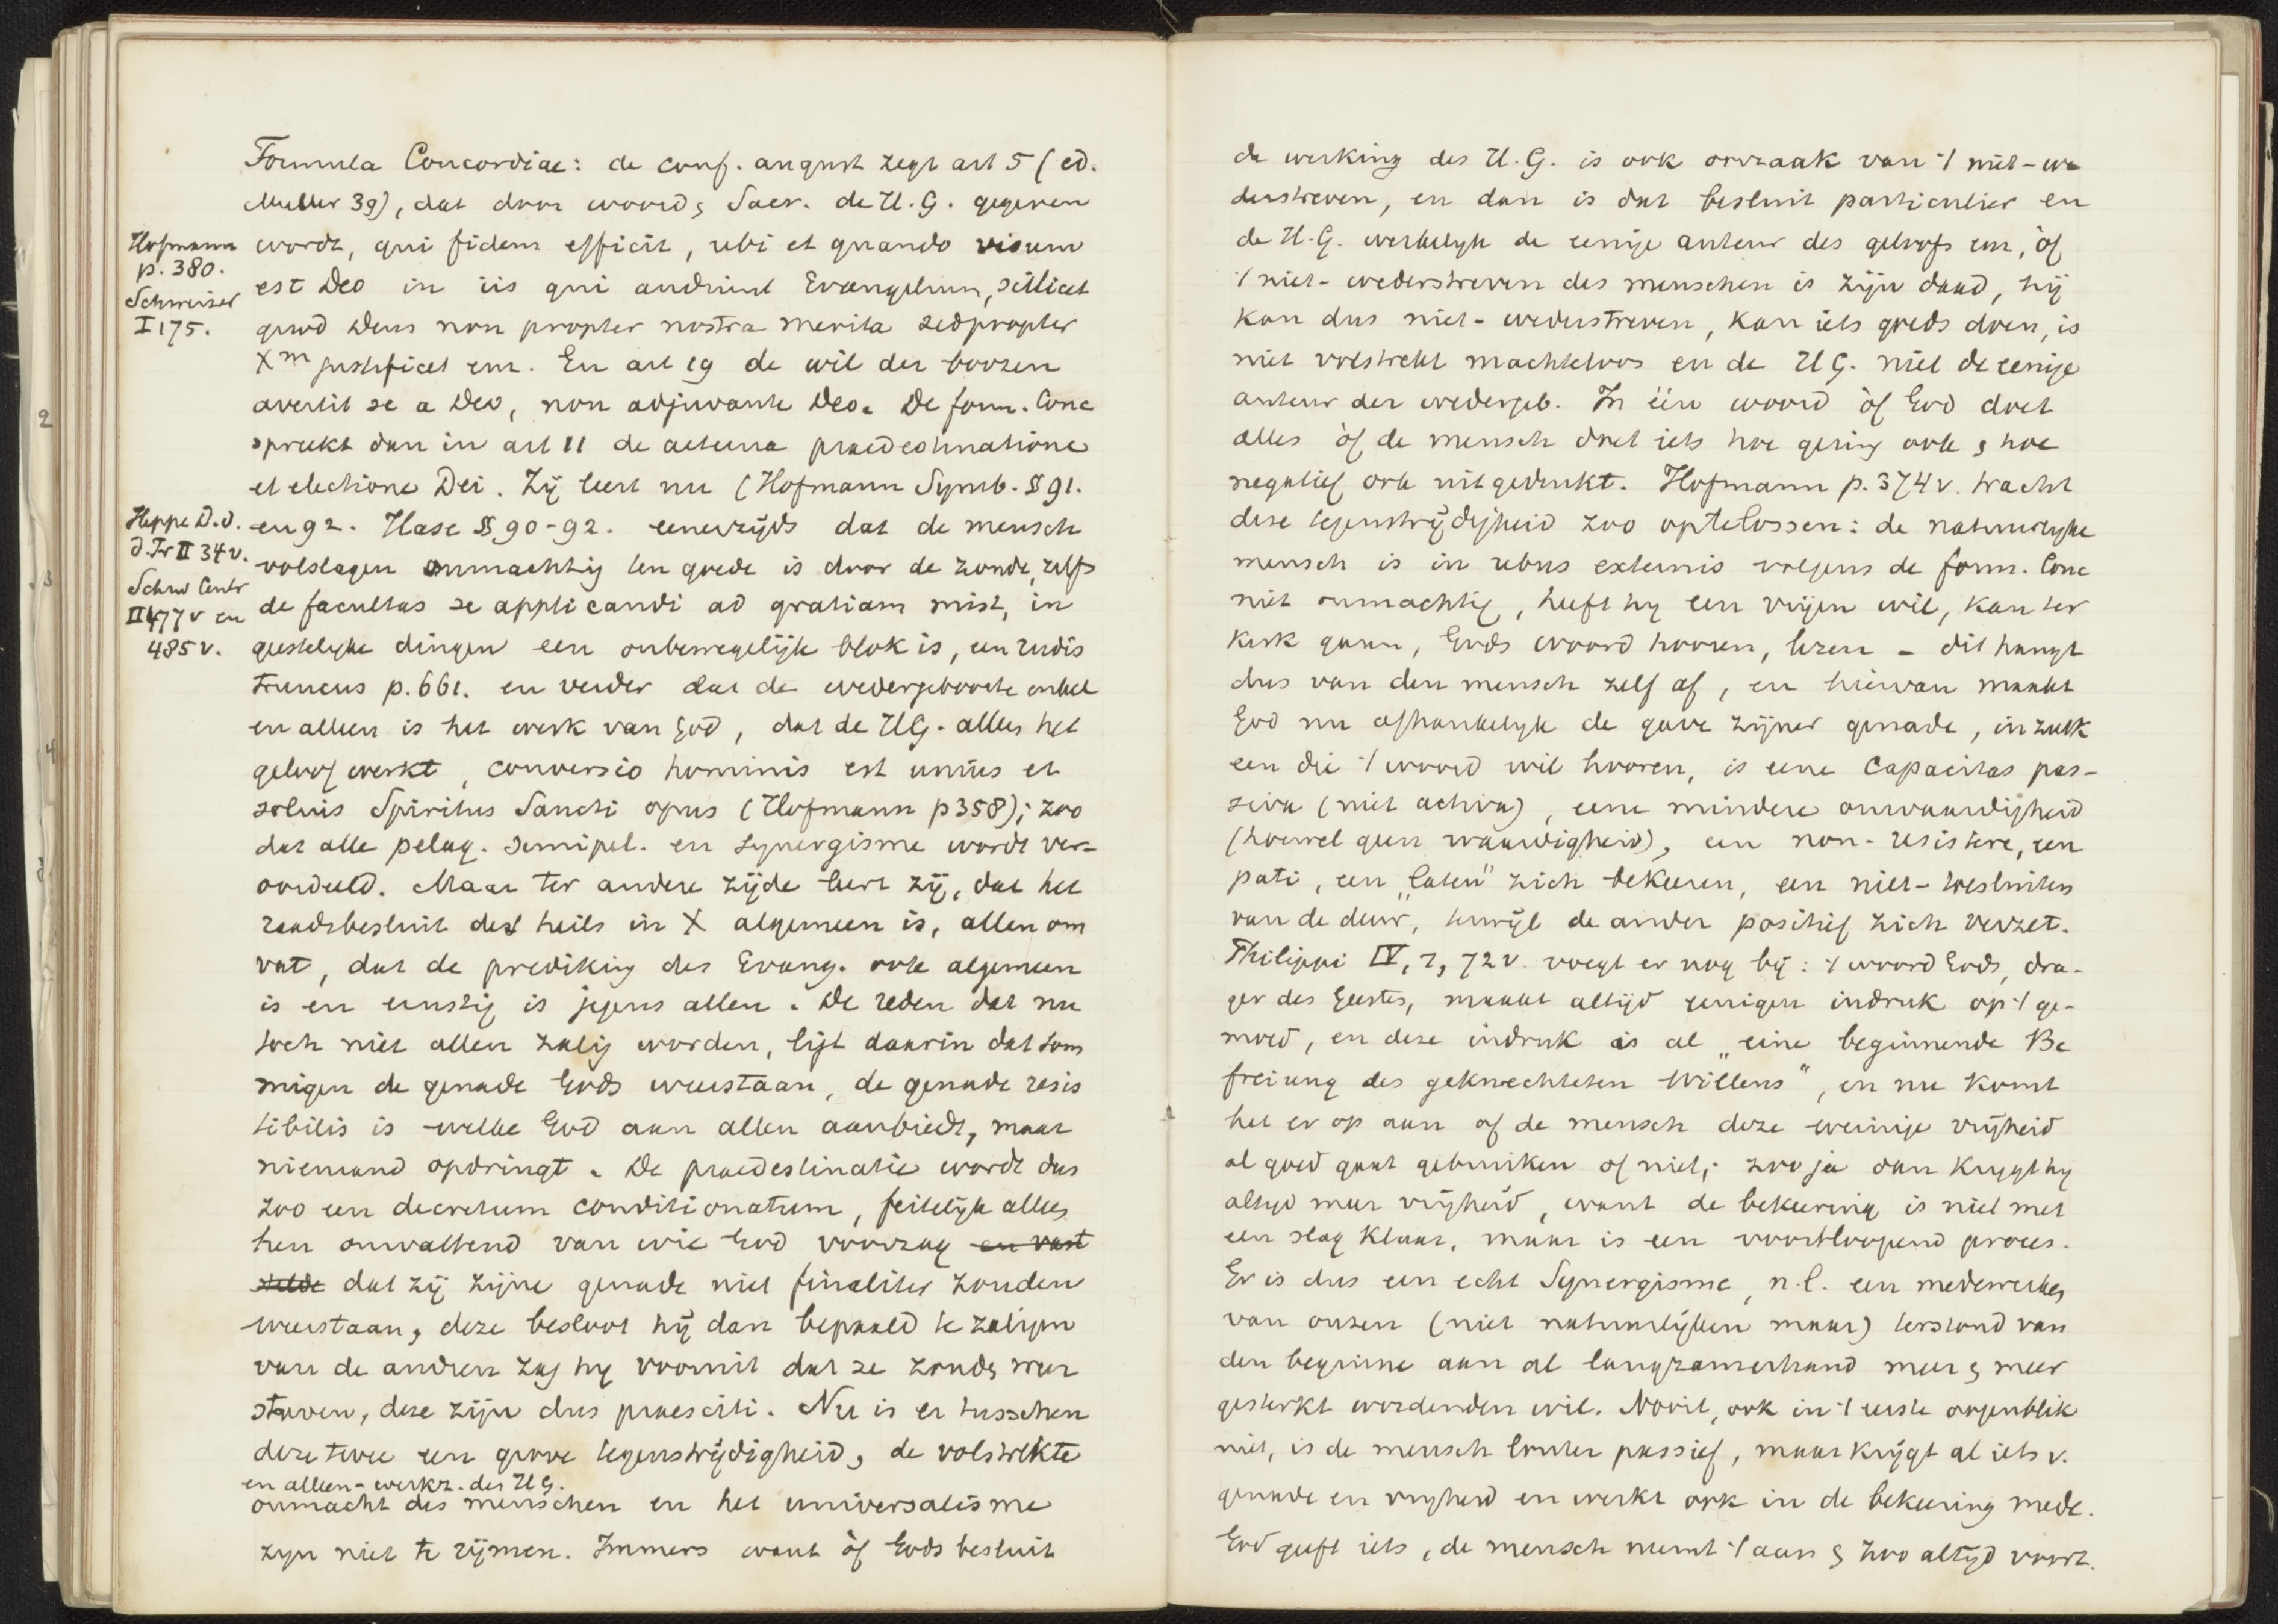 Formula Concordiae: de conf. august zegt art 5 (ed.
Muller 39), dat door woord & Sacr. de H.G. gegeven
Hofmann
p. 380.
Schweizer
I 175.
wordt, qui fidem efficit, ubi et quando visum
est Deo in iis qui audiunt Evangelium, scilicet
quod Deus non propter nostra merita sed propter
Xm justificet enz. En art 19 de wil der boozen
avertit se a Deo, non adjuvante Deo. De form. Conc
spreekt dan in art 11 de aeterna praedestinatione
et electione Dei. Zij leert nu (Hofmann Symb. § 91.
Heppe D.d.
d. Pr II 34v.
Schw Centr
II 477v en
485v.
en 92. Hase § 90-92. eenerzijds dat de mensch
volslagen onmachtig ten goede is door de zonde, zelfs
de facultas se applicandi ad gratiam mist, in
geestelyke dingen een onbewegelijk blok is, een rudis
truncus p. 661. en verder dat de wedergeboorte enkel
en alleen is het werk van God, dat de HG. alleen het
geloof werkt, conversio hominis est unius et
solius Spiritus Sancti opus (Hofmann p 358); zoo
dat alle pelag. semipel. en synergisme wordt ver-
oordeeld. Maar ter andere zijde leert zij, dat het
raadsbesluit des heils in X algemeen is, allen om
vat, dat de prediking des Evang. ook algemeen
is en ernstig is jegens allen. De reden dat nu
toch niet allen zalig worden, ligt daarin dat som
migen de genade Gods weerstaan, de genade resis
tibilis is welke God aan allen aanbiedt, maar
niemand opdringt. De praedestinatie wordt dus
zoo een decretum conditionatum, feitelyk alleen
hen omvattend van wie God voorzag en vast
stelde dat zij zijne genade niet finaliter zouden
weerstaan, deze besloot hij dan bepaald te zaligen
van de andren zag hy vooruit dat ze zouden weer
streven, deze zijn dus praesciti. Nu is er tusschen
deze twee een grove tegenstrijdigheid, de volstrekte
en alleen-werkz. des HG.
onmacht des menschen en het universalisme
zyn niet te rijmen. Immers want òf Gods besluit
de werking des H.G. is ook oorzaak van 't niet-we
derstreven, en dan is dat besluit particulier en
de H.G. werkelyk de eenige auteur des geloofs enz, òf
't niet-wederstreven des menschen is zijn daad, hij
kan dus niet-wederstreven, kan iets goeds doen, is
niet volstrekt machteloos en de HG. niet de eenige
auteur der wedergeb. In één woord òf God doet
alles òf de mensch doet iets hoe gering ook & hoe
negatief ook uitgedrukt. Hofmann p. 374v. tracht
deze tegenstrijdigheid zoo optelossen: de natuurlyke
mensch is in rebus externis volgens de form. Conc
niet onmachtig, heeft hy een vrijen wil, kan ter
kerk gaan, Gods woord hooren, lezen – dit hangt
dus van den mensch zelf af, en hiervan maakt
God nu afhankelyk de gave zijner genade, in zulk
een die 't woord wil hooren, is eene capacitas pas-
siva (niet activa), eene mindere onwaardigheid
(hoewel geen waardigheid), een non-resistere, een
pati, een „laten" zich bekeeren, een niet-toesluiten
van de deur, terwijl de ander positief zich verzet.
Philippi IV, 1, 72v. voegt er nog bij: 't woord Gods, dra-
ger des Geestes, maakt altijd eenigen indruk op 't ge-
moed, en deze indruk is al „eine beginnende Be
freiung des geknechteten Willens", en nu komt
het er op aan of de mensch deze weinige vrijheid
al goed gaat gebruiken of niet; zoo ja dan krygt hy
altyd meer vrijheid, want de bekeering is niet met
een slag klaar, maar is een voortloopend proces.
Er is dus een echt Synergisme, n.l. een medewerken
van onzen (niet natuurlijken maar) terstond van
den beginne aan al langzamerhand meer & meer
gesterkt wordenden wil. Nooit, ook in 't eerste oogenblik
niet, is de mensch louter passief, maar krijgt al iets v.
genade en vryheid en werkt ook in de bekeering mede.
God geeft iets, de mensch neemt 't aan & zoo altijd voort.